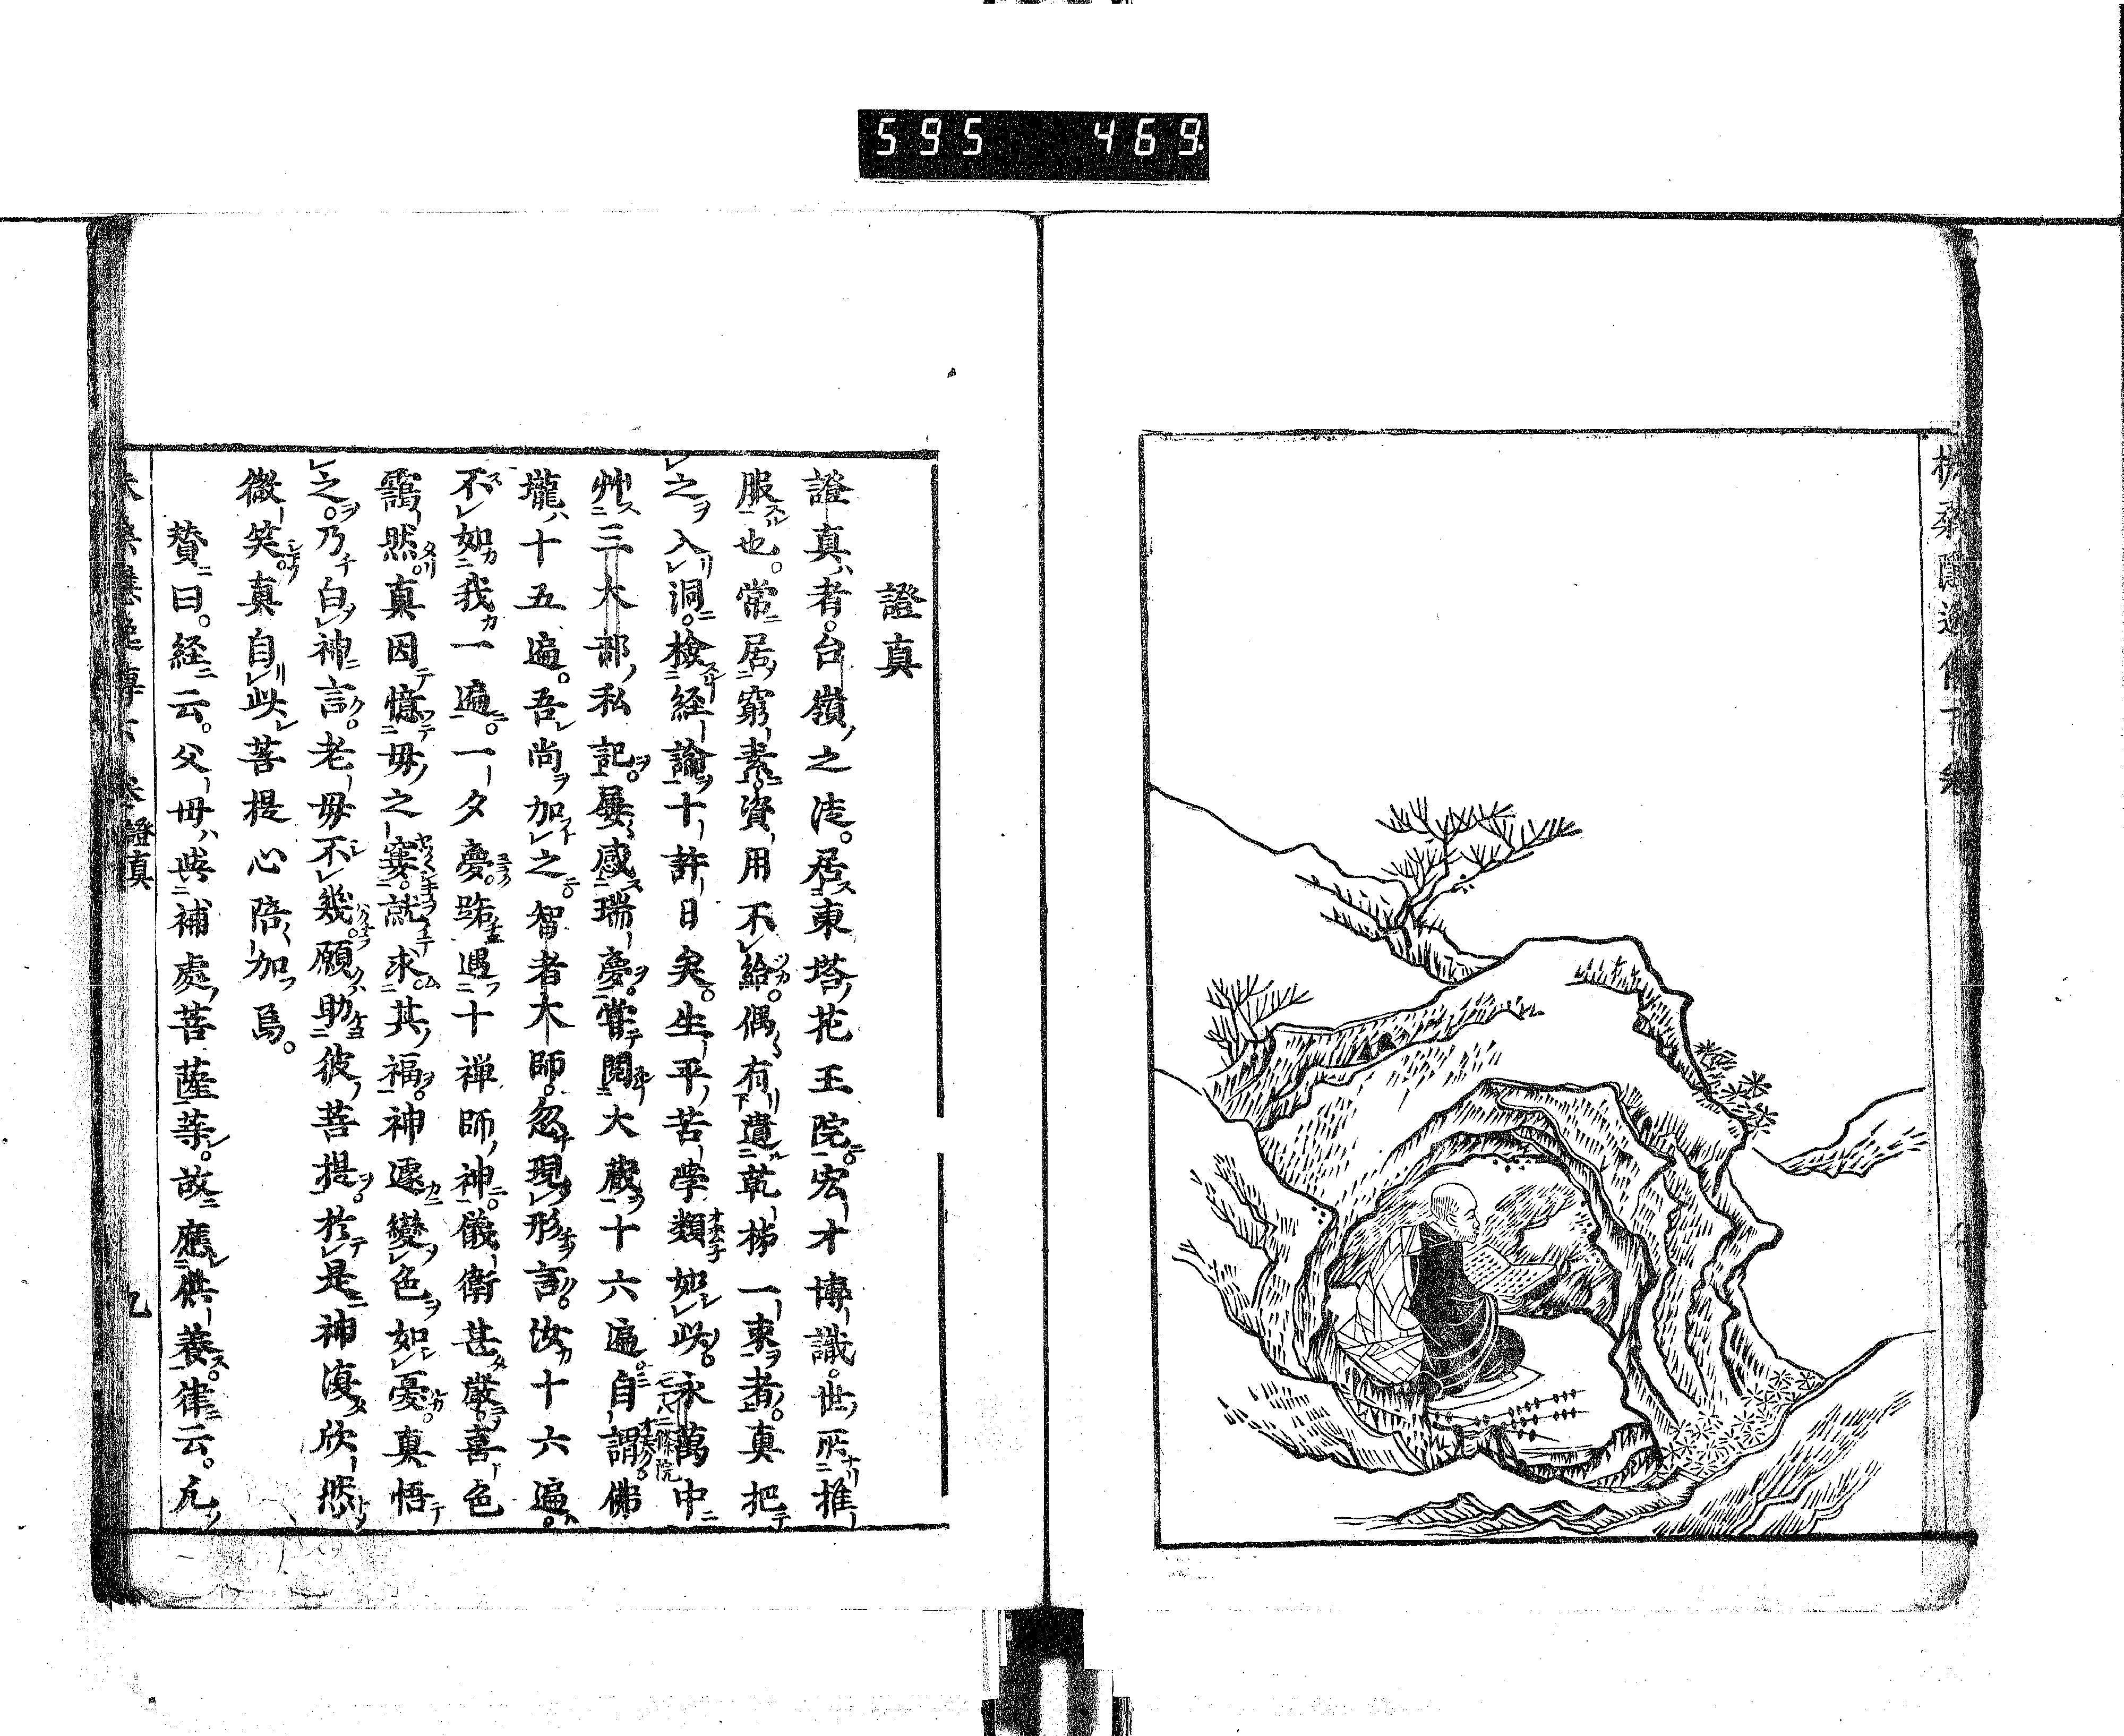 595 469
扶桑隱逸傳下卷
證真
證真者。台嶺之徒。居東塔花王院。宏才博識。世所推
服也。常居窮素。資用不給。偶有遺乾柹一束者。真把
之入洞。檢經論十許日矣。生平苦學類如此。永萬中
艸三大部私記。屡感瑞夢。嘗閲大藏十六遍。自謂佛
壠十五遍。吾尚加之。智者大師。忽現形言。汝十六遍。
不如我一遍。一夕夢跪遇十禅師神。儀衛甚嚴。喜色
靄然。真因憶母之寠。就求其福。神遽變色如憂。真悟
之。乃白神言。老母不幾。願助彼菩提。於是神復欣然
微笑。真自此菩提心陪加焉。
賛曰。経云。父母與補處菩薩等。故應供養。律云。凢
證真
九